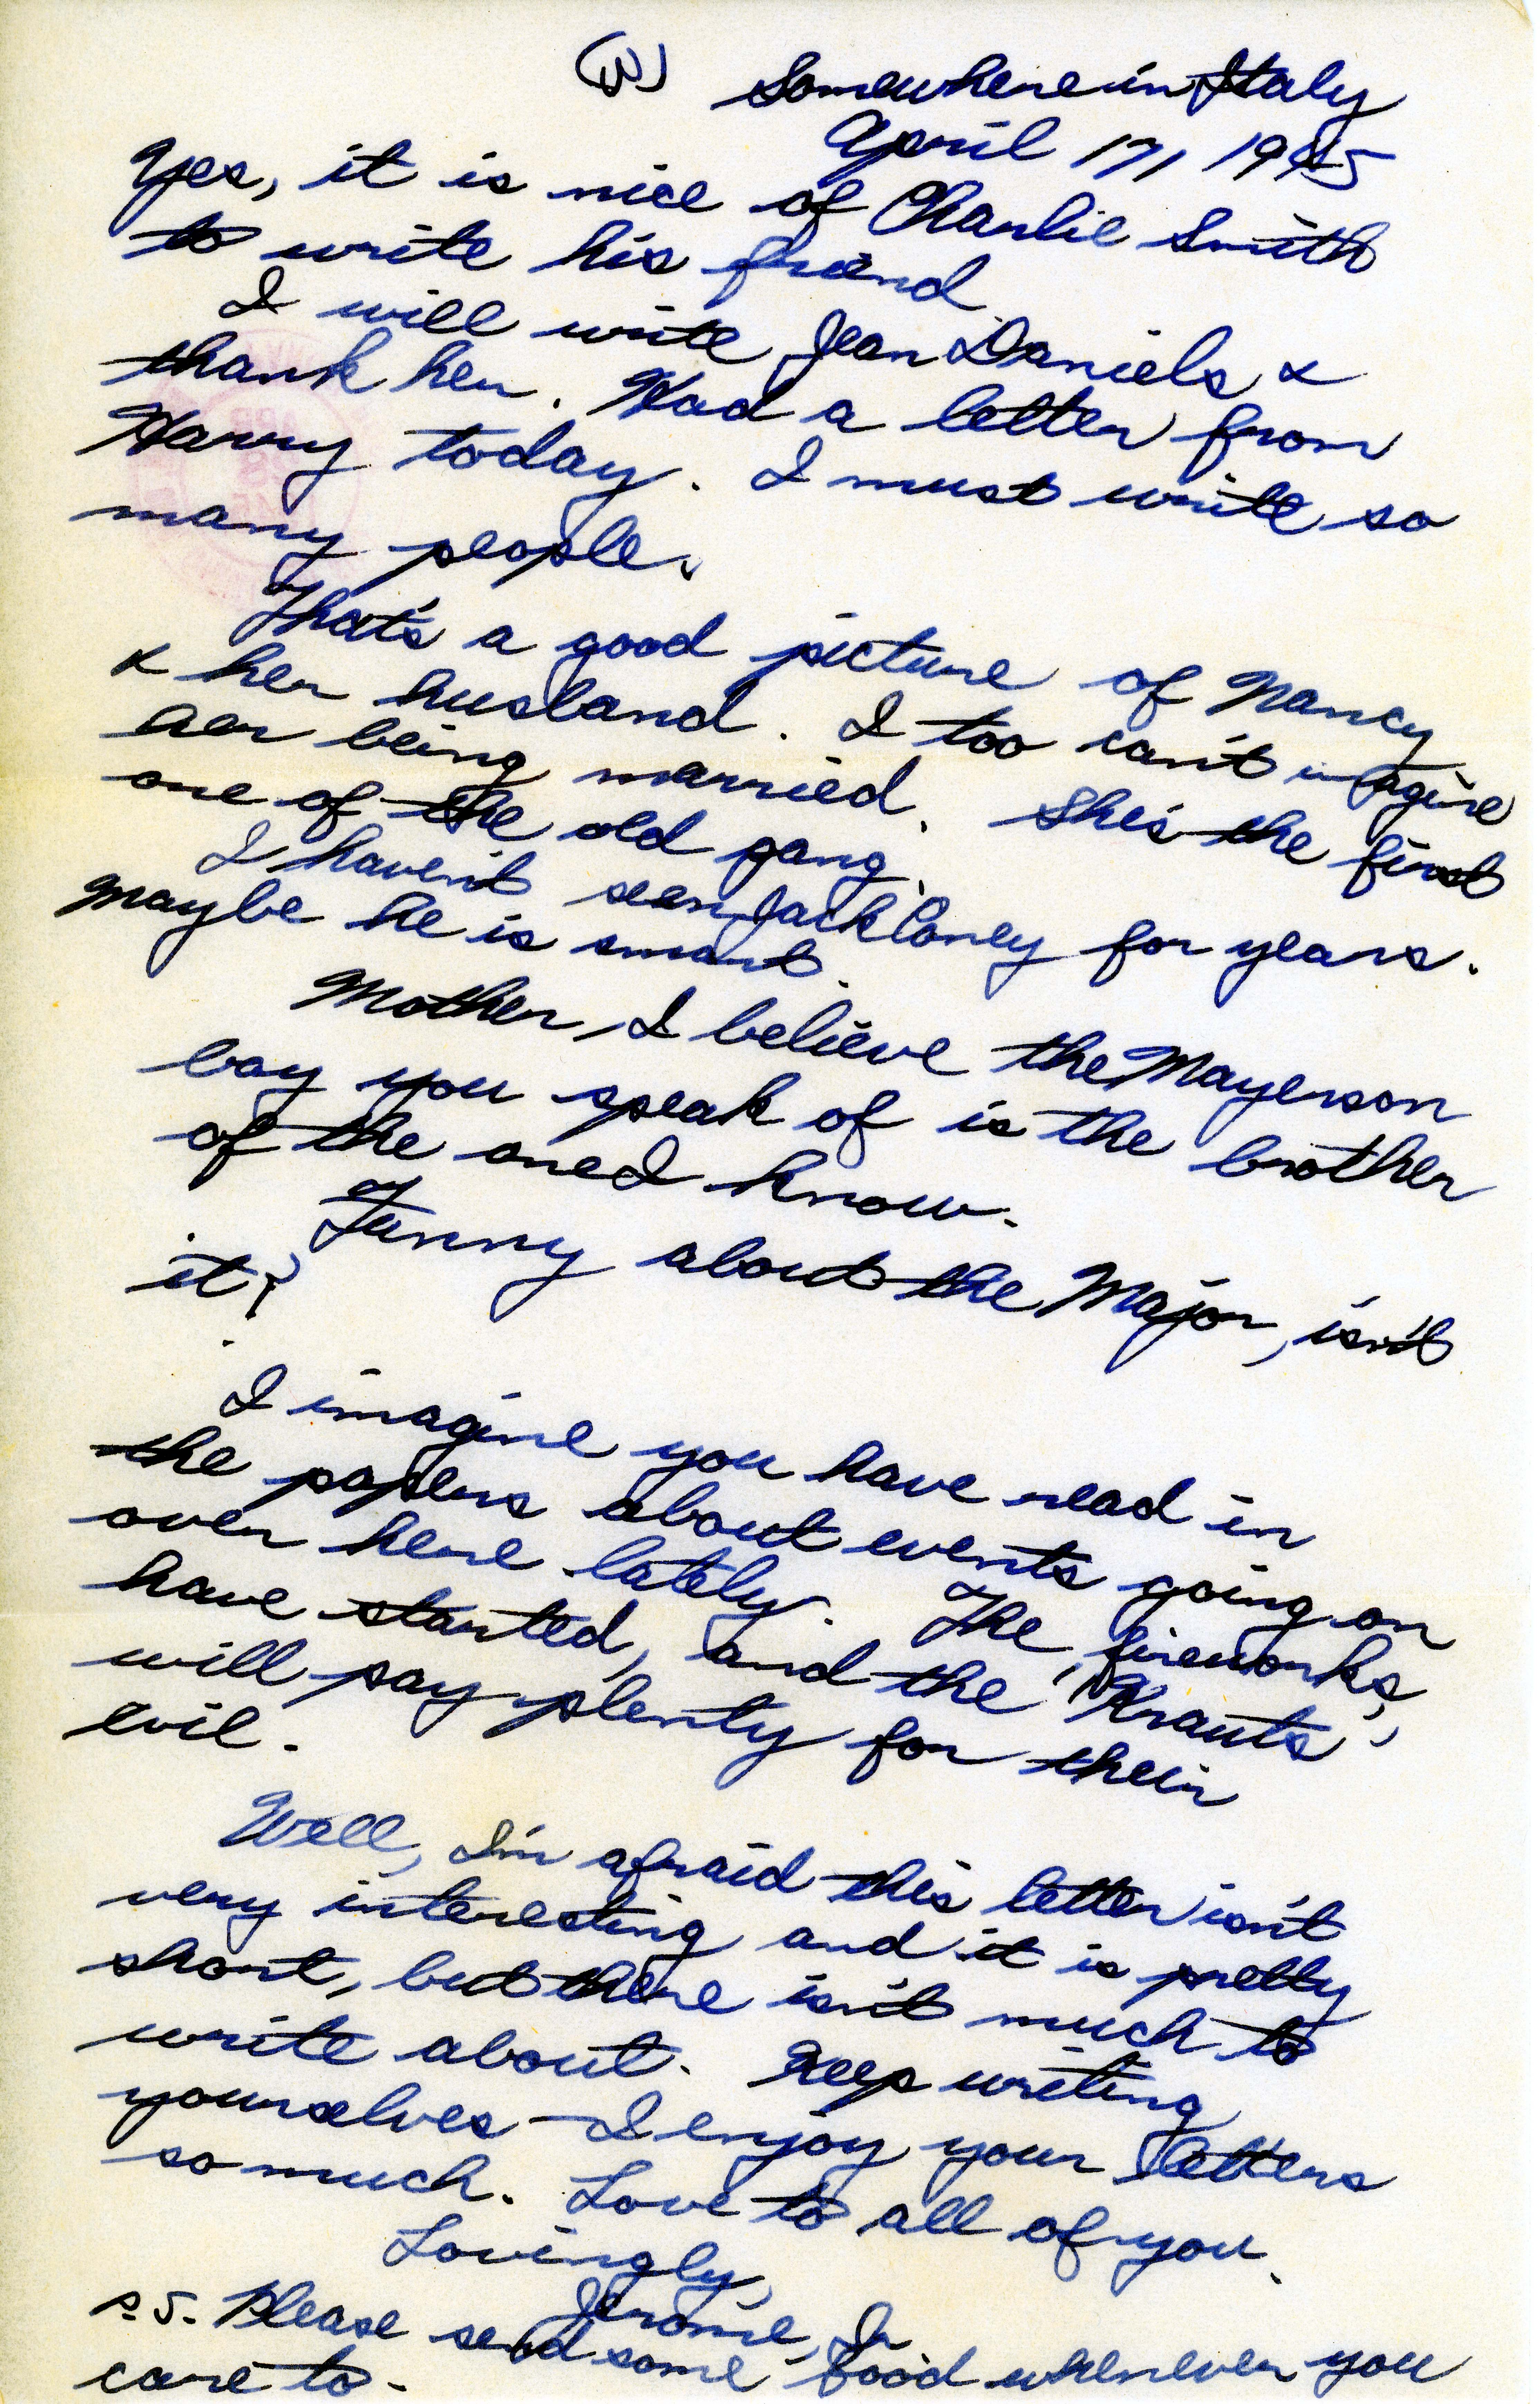 (3) Somewhere in Italy
April 17, 1945
Yes, it is nice of Charlie Smith
to write his friend.
I will write Jean Daniels &
thank her. Had a letter from
Harry today. I must write so
many people.
That's a good picture of Nancy
& her husband. I too can't imagine
her being married. She's the first
one of the old gang.
I haven't seen Jack Coney for years.
Maybe he is smart.
Mother, I believe the Mayerson
boy you speak of is the brother
of the one I know.
Funny about the Major, isn't
it?
I imagine you have read in
the papers about events going on
over here lately. The fireworks
have started, and the "Krauts"
will pay plenty for their
evil.
Well, I'm afraid this letter isn't
very interesting and it is pretty
short, but there isn't much to
write about. Keep writing
yourselves - I enjoy your letters
so much. Love to all of you.
Lovingly,
Jerome, Jr
P.S. Please send some food whenever you
care to.